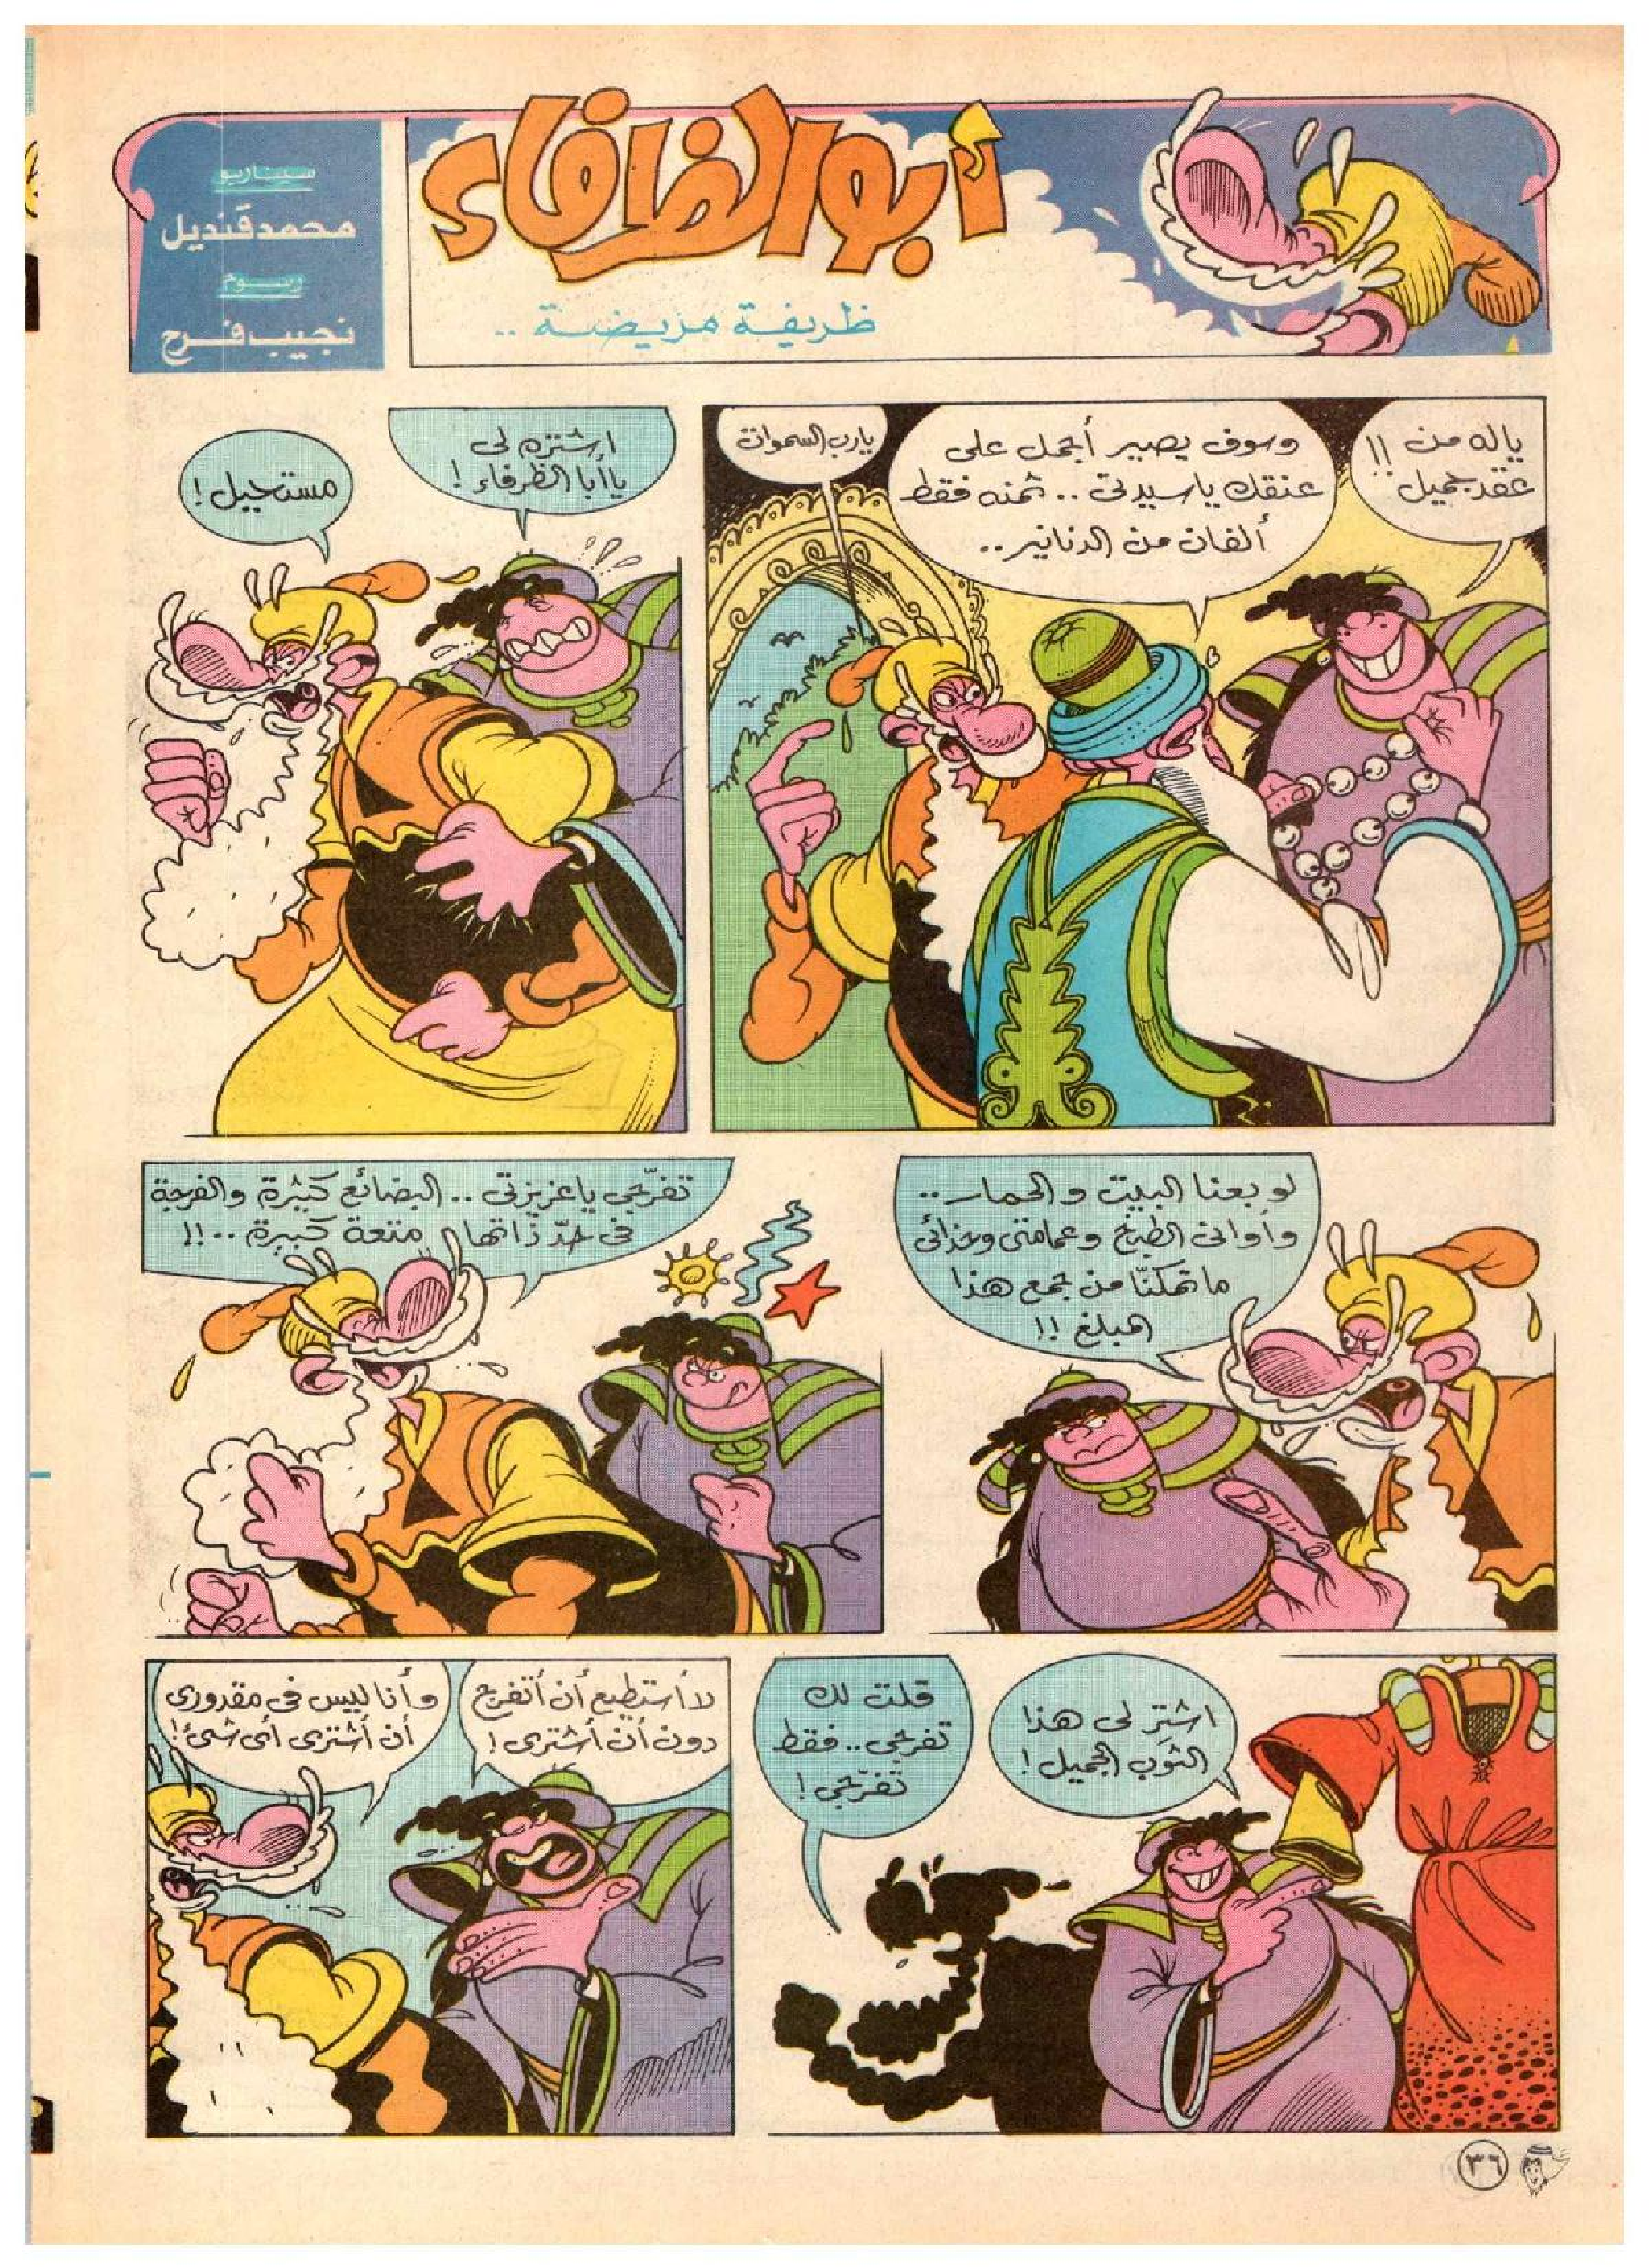 أبو الظرفاء
ظريفة مريضة ..
سيناريو
محمد قنديل
رسوم
نجيب فرح
ياله من !!
عقد جميل
وسوف يصير أجمل على
عنقك ياسيدتى .. ثمنه فقط
ألفان من الدنانير ..
يارب السموات
اشتره لى
ياأبا الظرفاء !
مستحيل !
لو بعنا البيت و الحمار ..
وأوانى الطبخ وعمامتى وحذائى
ما تمكنّا من جمع هذا
المبلغ !!
تفرّجى ياعزيزتى .. البضائع كثيرة والفرجة
فى حدّ ذاتها متعة كبيرة ..!!
اشترِ لى هذا
الثوب الجميل !
قلت لك
تفرجى .. فقط
تفرّجى !
لا أستطيع أن أتفرج
دون أن أشترى !
وأنا ليس فى مقدورى
أن أشترى أى شئ !
٣٦